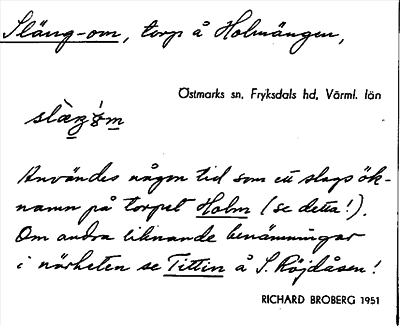 Släng-om, torp å Holmängen,
Östmarks sn, Fryksdals hd, Värml. län
Användes någon tid som ett slags ök-
namn på torpet Holm (se detta!).
Om andra liknande benämningar
i närheten se Tittin å S. Röjdåsen!
RICHARD BROBERG 1951